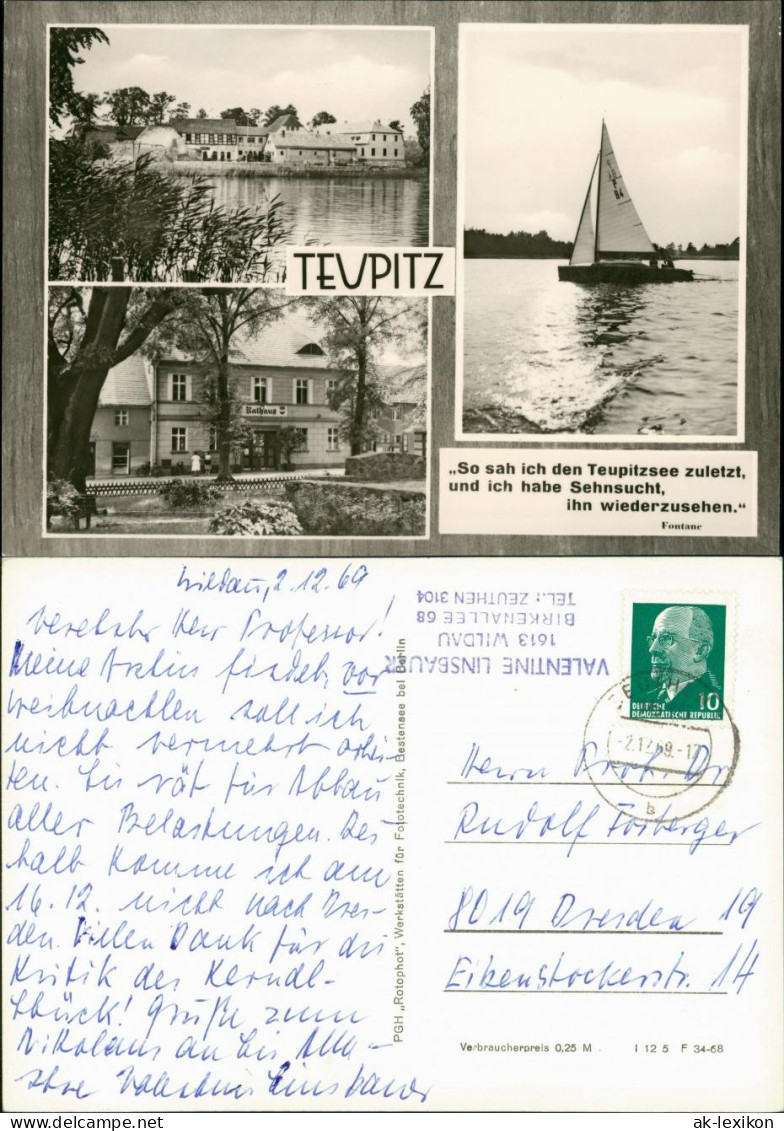 TEUPITZ
Rathaus
P
84
„So sah ich den Teupitzsee zuletzt,
und ich habe Sehnsucht,
ihn wiederzusehen.“
Fontane
Wildau, 2.12.69
Verehrter Herr Professor!
Meine Ärztin findet, vor
Weihnachten soll ich
nicht vermehrt arbei-
ten. Sie rät für Abbau
aller Belastungen. Des
halb komme ich am
16.12. nicht nach Dres-
den. Vielen Dank für die
Kritik des
stück! Grüße zum
Nikolaus an Sie Alle
Ihre Valentine Linsbauer
PGH „Rotophot“, Werkstätten für Fototechnik, Bestensee bei Berlin
VALENTINE LINSBAUER
1613 WILDAU
BIRKENALLEE 68
TEL.: ZEUTHEN 3104
10
DEUTSCHE
DEMOKRATISCHE REPUBLIK
-2.12.69.-17
b
Herrn Prof. Dr
Rudolf Forberger
8019 Dresden 19
Eibenstockerstr. 14
Verbraucherpreis 0,25 M
I 12 5 F 34-68
ak-lexikon